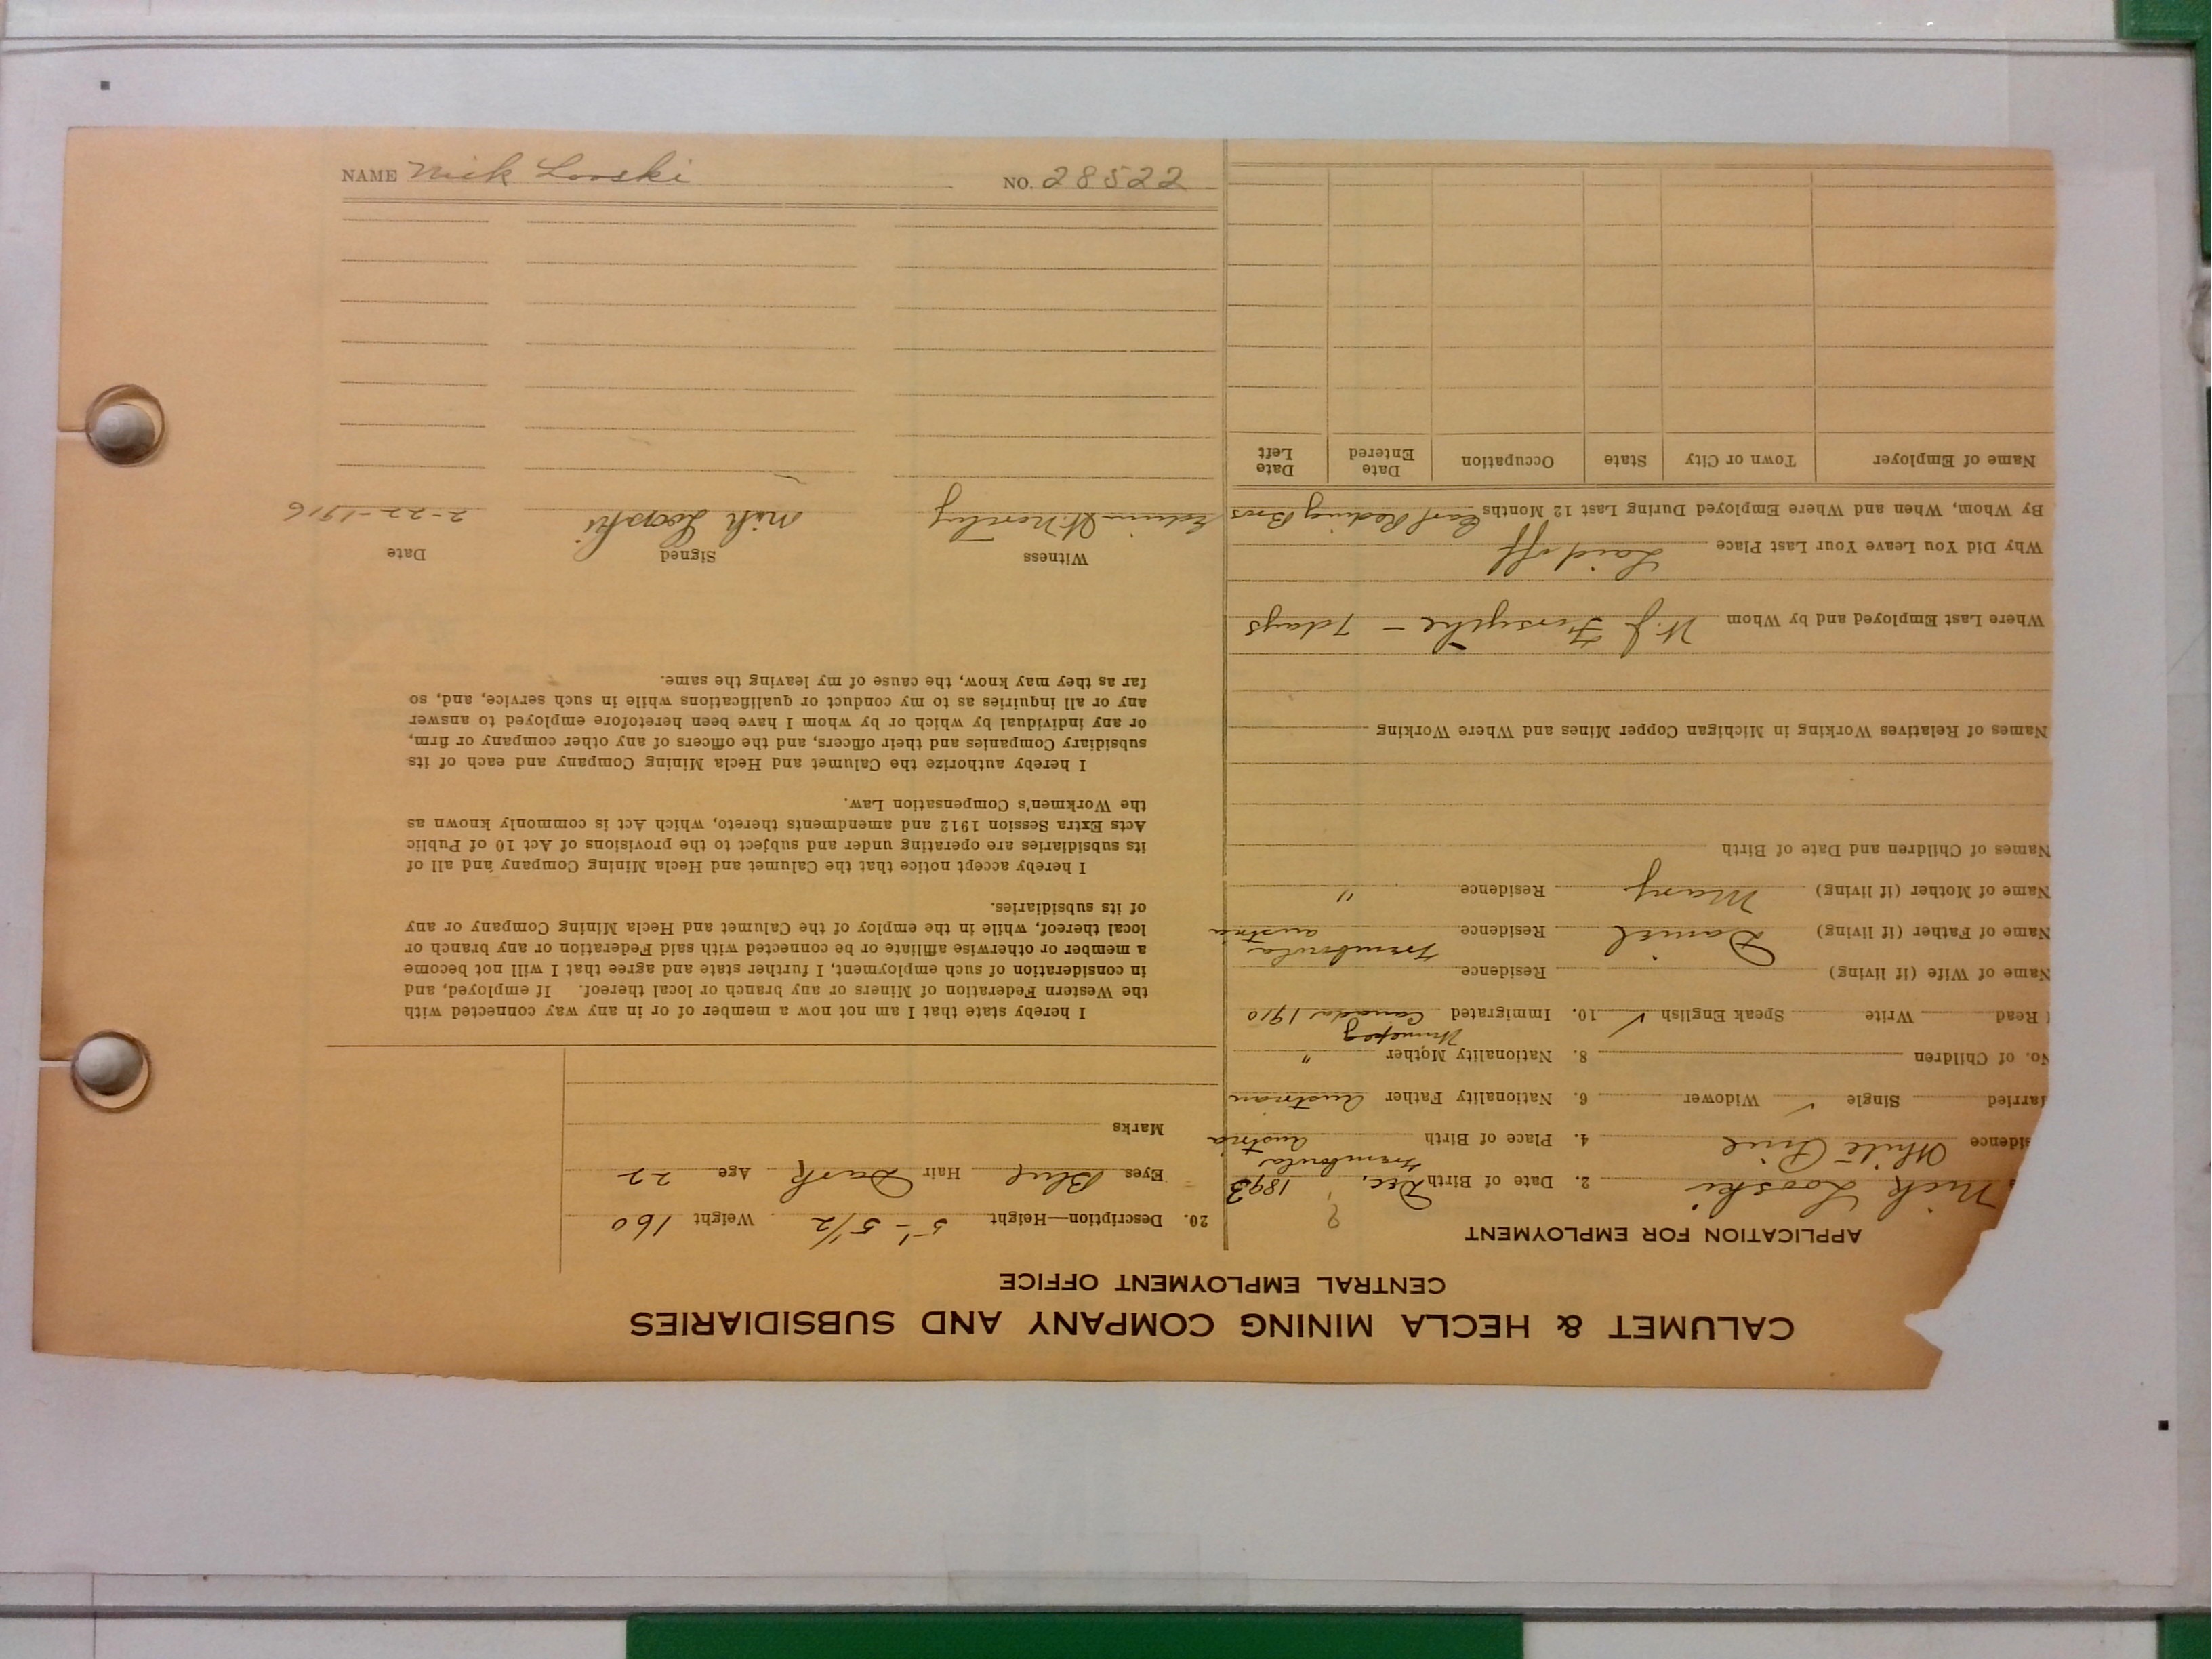 NAME Nick Looski NO. 28522
CALUMET & HECLA MINING COMPANY AND SUBSIDIARIES
CENTRAL EMPLOYMENT OFFICE
APPLICATION FOR EMPLOYMENT
Nick Looski 2. Date of Birth Dec. ? 1893
sidence White Pine 4. Place of Birth Austria
arried Single ✓ Widower 6. Nationality Father Austrian
No. of Children 8. Nationality Mother "
Read Write Speak English ✓ 10. Immigrated Canada 1910
Name of Wife (if living) Residence
Name of Father (if living) Daniel Residence Austria
Name of Mother (if living) Mary Residence "
Names of Children and Date of Birth
Names of Relatives Working in Michigan Copper Mines and Where Working
Where Last Employed and by Whom W. J. Forsythe – 7 days
Why Did You Leave Your Last Place Laid off
By Whom, When and Where Employed During Last 12 Months Bros
Name of Employer Town or City State Occupation Date Entered Date Left
20. Description—Height 5'-5 1/2 Weight 160
Eyes Blue Hair Dark Age 22
Marks
I hereby state that I am not now a member of or in any way connected with
the Western Federation of Miners or any branch or local thereof. If employed, and
in consideration of such employment, I further state and agree that I will not become
a member or otherwise affiliate or be connected with said Federation or any branch or
local thereof, while in the employ of the Calumet and Hecla Mining Company or any
of its subsidiaries.
I hereby accept notice that the Calumet and Hecla Mining Company and all of
its subsidiaries are operating under and subject to the provisions of Act 10 of Public
Acts Extra Session 1912 and amendments thereto, which Act is commonly known as
the Workmen's Compensation Law.
I hereby authorize the Calumet and Hecla Mining Company and each of its
subsidiary Companies and their officers, and the officers of any other company or firm,
or any individual by which or by whom I have been heretofore employed to answer
any or all inquiries as to my conduct or qualifications while in such service, and, so
far as they may know, the cause of my leaving the same.
Witness Signed Date
Nick Looski 2-22-1916